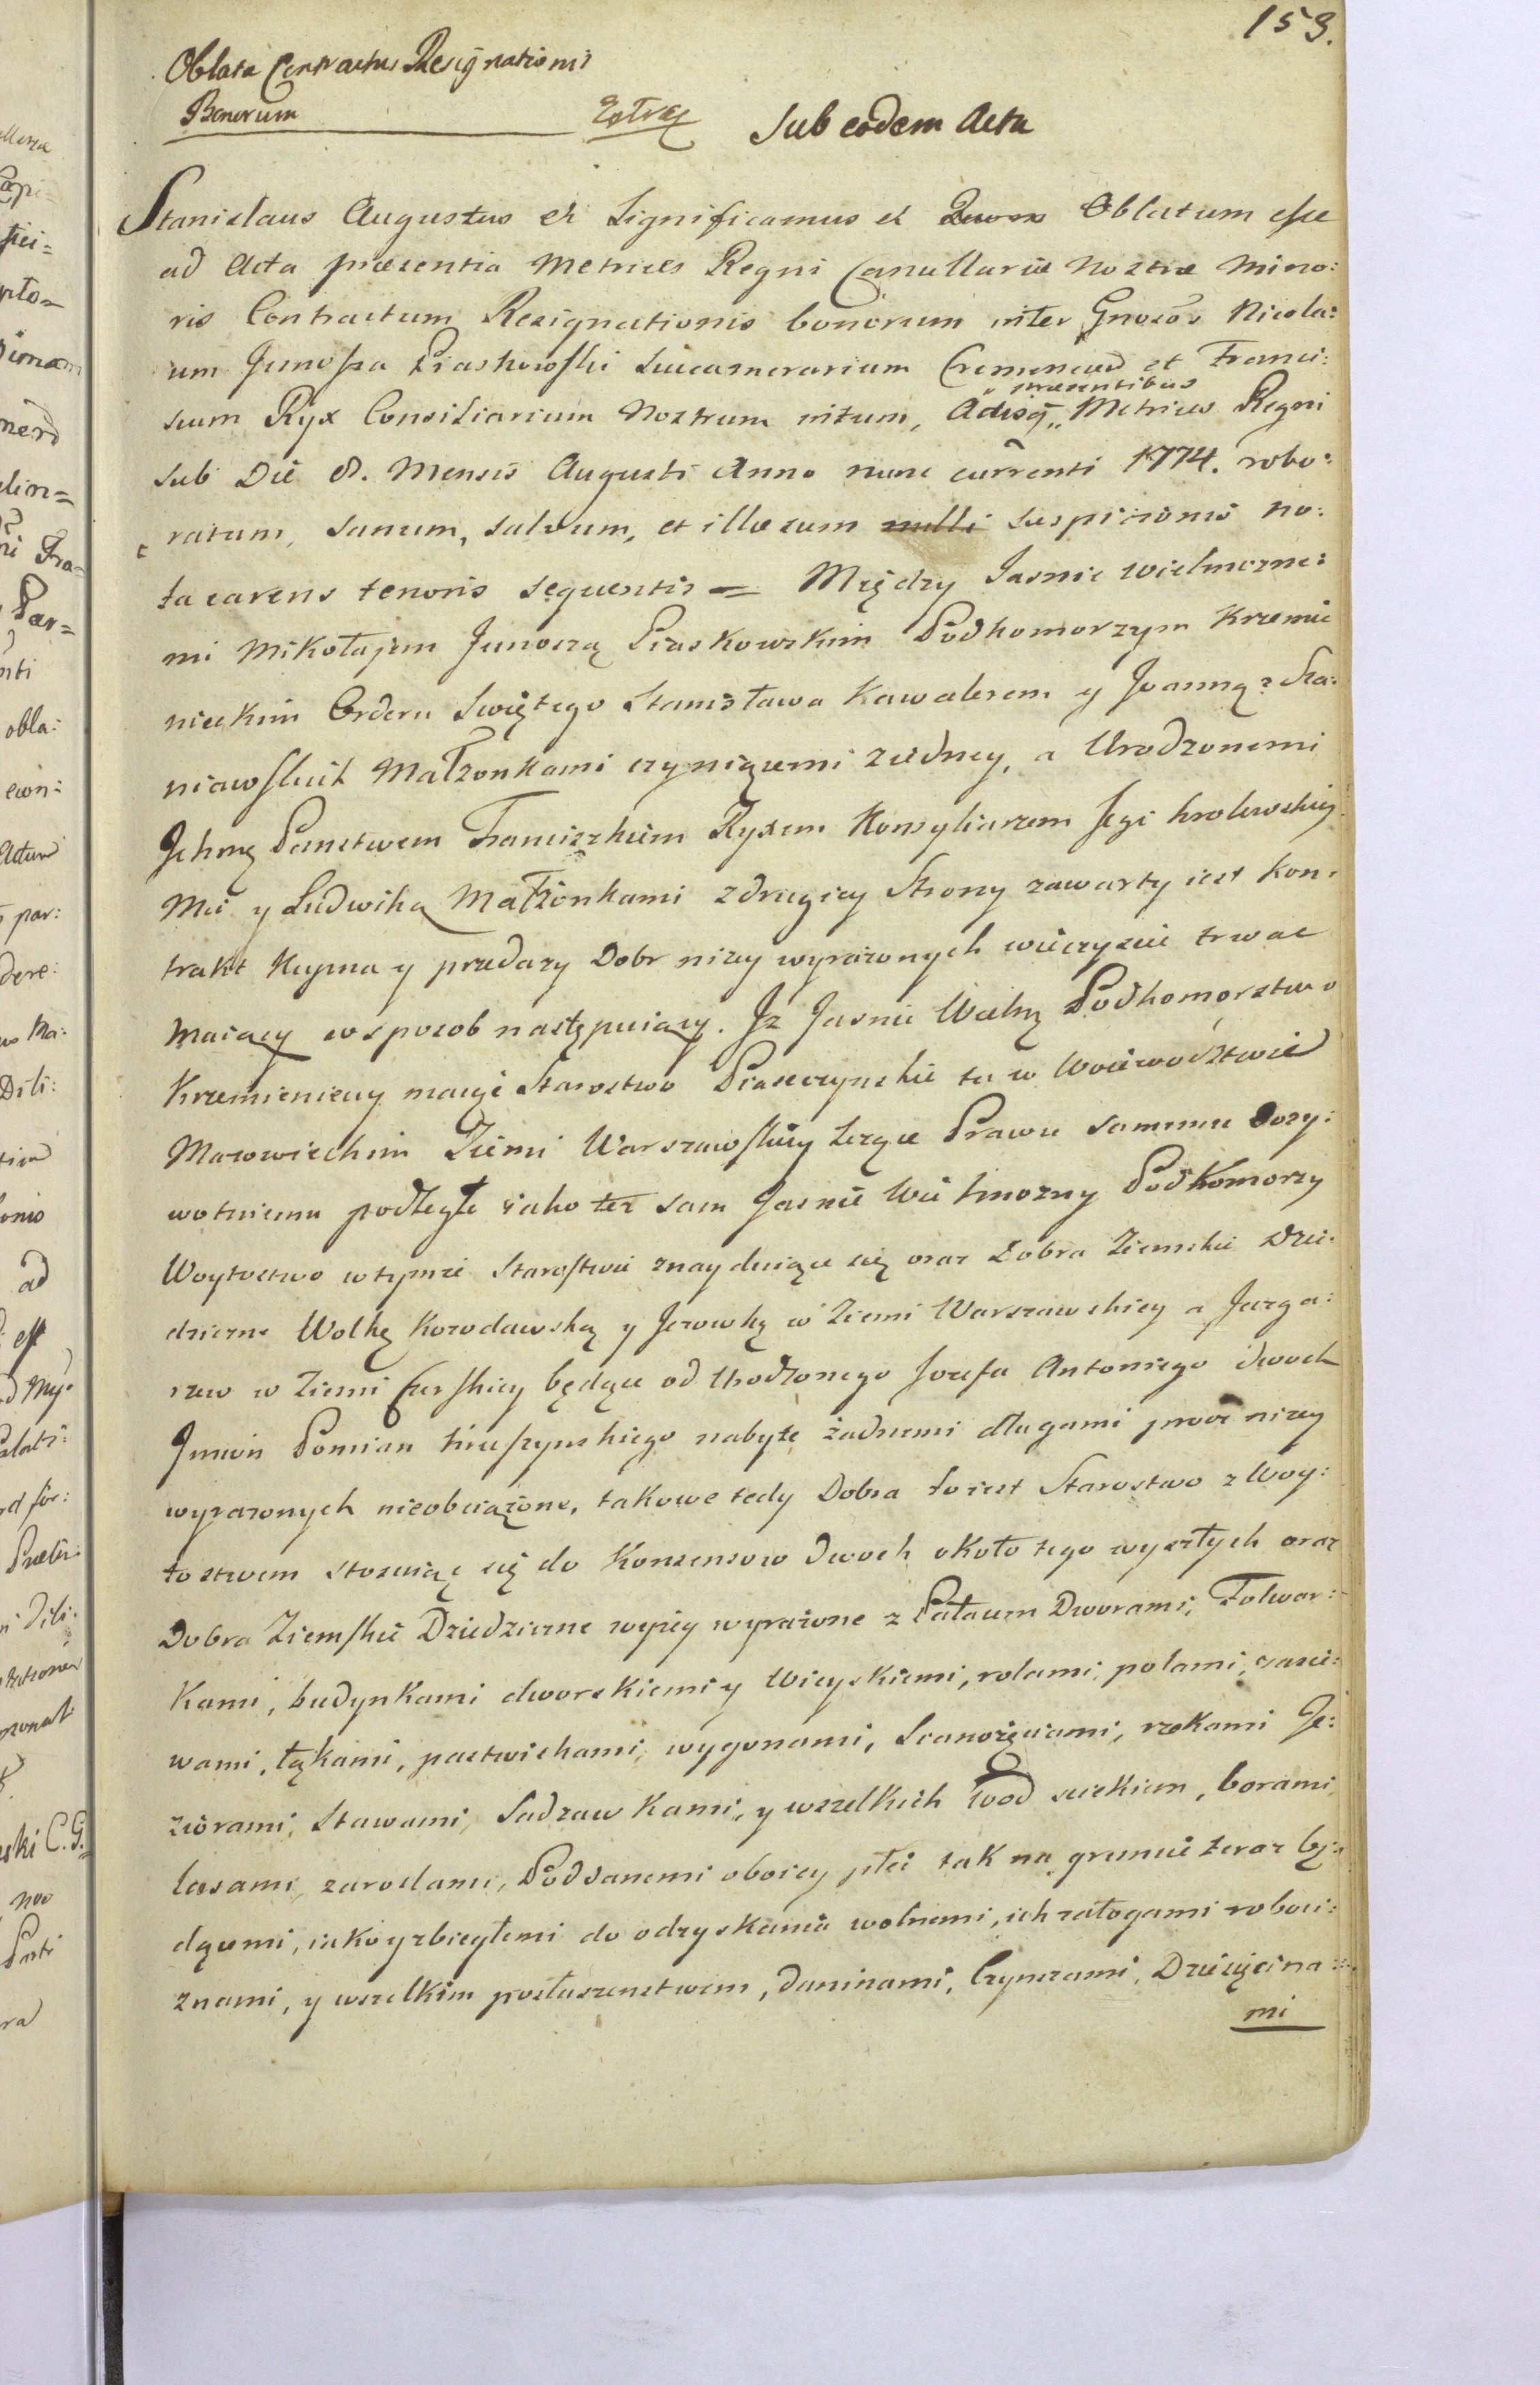 153.
Oblata Contractus Resignationis
Bonorum
Extrax
Sub eodem Actu
Stanislaus Augustus et Significamus et Quorn Oblatum esse
ad Acta præsentia Metrices Regni Cancellariæ Nostræ Mino:
ris Contractum Resignationis bonorum inter Gnosos Nicola:
um Junosza Piaskowski Succamerarium Cremenecen et Franci:
scum Ryx Consiliarium Nostrum initum, Actisq præsentibus Metrices Regni
sub Die 8. Mensis Augusti Anno nunc currenti 1774. robo:
ratum, sanum, salvum, et illæsum nulli suspicionis no:
ta carens tenoris sequentis = Między Jasnie wielmozne:
mi Mikołajem Junoszą Piaskowskim Podkomorzym Krzemie
nieckim Orderu Swiętego Stanisława Kawalerem y Joanną z Sta:
niawskich Małżonkami czyniącemi z iedney, a Urodzonemi
Ichmę Panstwem Franciszkiem Ryxem Konsyliarzem Jego krolewskiey
Mci y Ludwiką Małżonkami z drugiey Strony zawarty iest Kon:
trakt Kupna y przedazy Dobr nizey wyrazonych wieczyscie trwac
maiący w sposob następuiący. Iz Jasnie Wielm Podkomorstwo
Krzemienieccy maiąc Starostwo Piaseczynskie tu w Woiewodztwie
Mazowieckim Ziemi Warszawskiey lezące Prawu samemu Dozy:
wotniemu podległe iako też sam Jasnie Wielmozny Podkomorzy
Woytostwo w tymze Starostwie znayduiące się oraz Dobra Ziemskie Dzie:
dziczne Wolkę Kozodawską y Jerowkę w Ziemi Warszawskiey a Jazga:
rzew w Ziemi Czerskiey będące od Urodzonego Jozefa Antoniego dwoch
Imion Pomian Kruszynskiego nabyte żadnemi długami procz nizey
wyrazonych nieobciążone, takowe tedy Dobra to iest Starostwo z Woy:
tostwem stosuiąc się do Konsensow dwoch około tego wyszłych oraz
Dobra Ziemskie Dziedziczne wyzey wyrażone z Pałacem Dworami, Folwar:
kami, budynkami dworskiemi y Wieyskiemi, rolami, polami, zasie:
wami, łąkami, pastwiskami, wygonami, Sianożęciami, rzekami Je:
ziorami, Stawami, Sadzawkami, y wszelkich wod sciekiem, borami,
lasami, zaroslami, Poddanemi oboiey płci tak na gruncie teraz bę:
dącemi, iako y zbiegłemi do odzyskania wolnemi, ich załogami roboci:
znami, y wszelkim posłuszenstwem, daninami, Czynszami, Dziesięcina:
mi